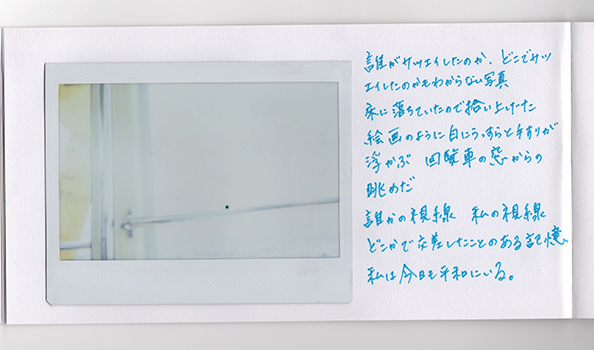 誰がサツエイしたのか、どこでサツ
エイしたのかもわからない写真
床に落ちていたので拾い上げた
絵画のように白にうっすらと手すりが
浮かぶ 回転車の窓からの
眺めだ
誰かの視線 私の視線
どこかで交差したことのある記憶、
私は今日も平和にいる。